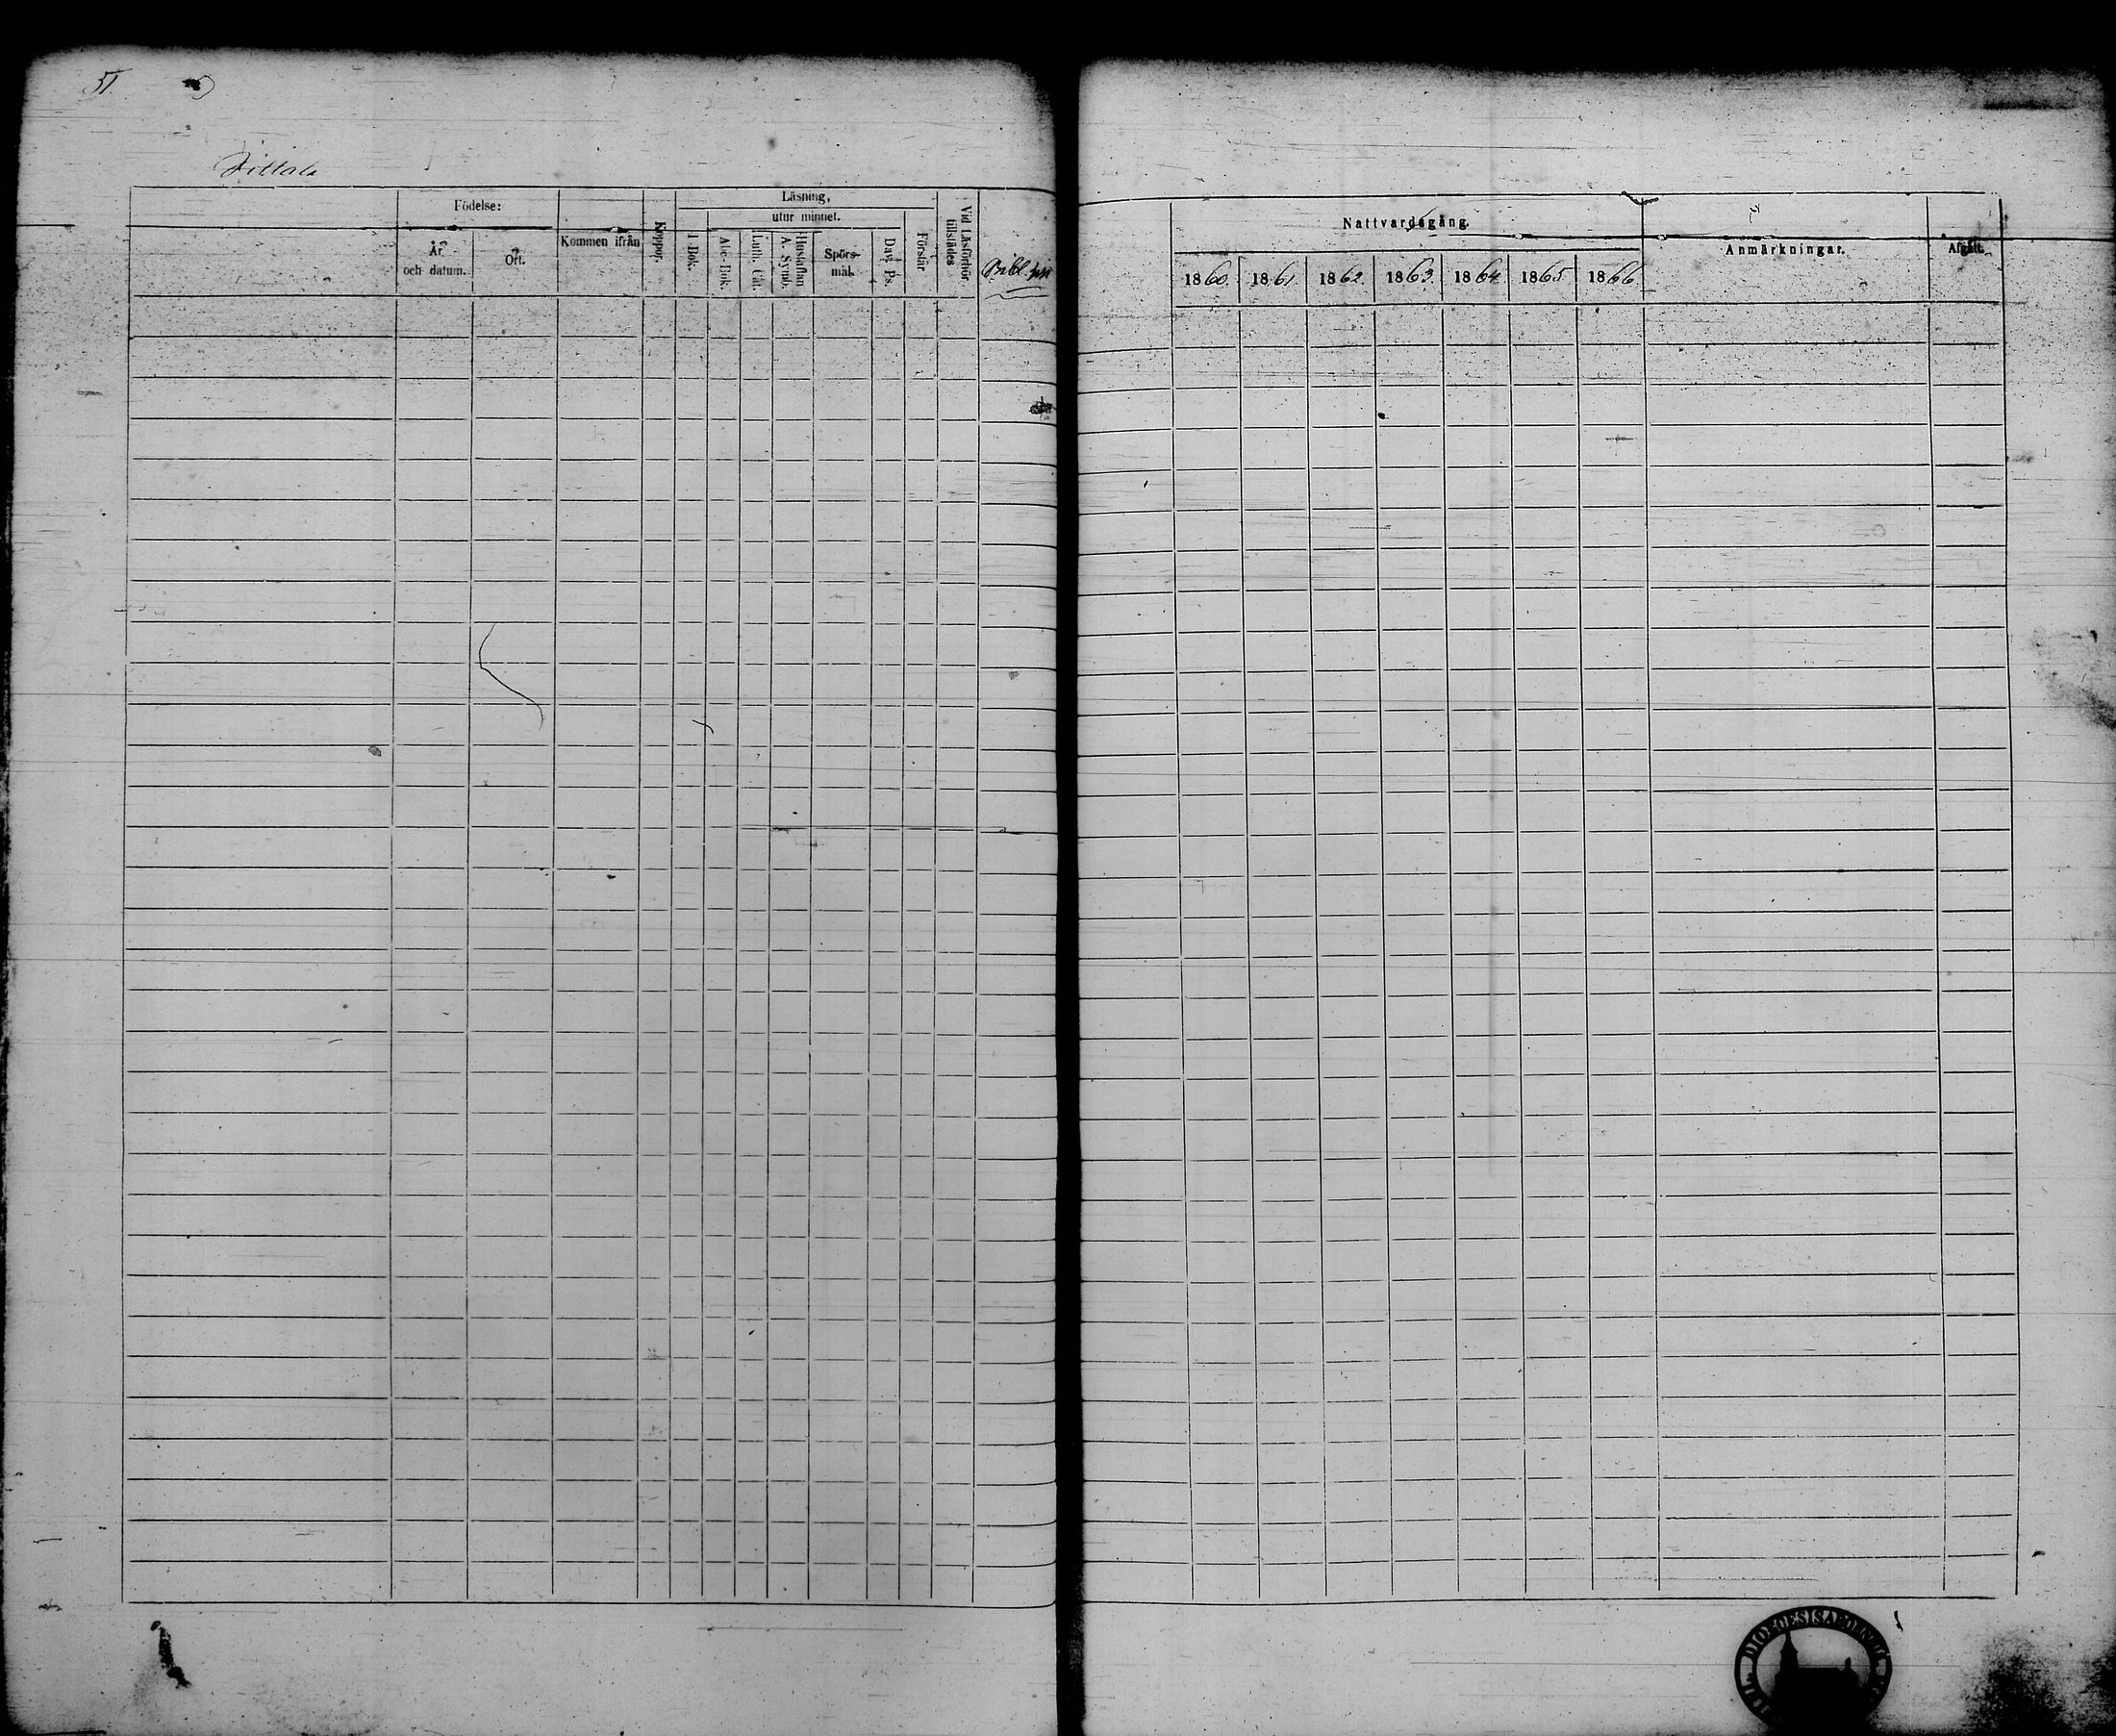 51.
Födelse:
År och datum.
Ort.
Kommen ifrån
Koppor.
Läsning,
utur minnet.
I Bok.
Abc-Bok.
Luth. Cat.
Hustaflan A. Symb.
Spörsmål.
Dav. Ps.
Förstår
Vid Läsförhör tillstädes
Bibl. hist
Nattvardsgång.
1860. 1861 1862. 1863. 1864. 1865 1866
Anmärkningar.
Afgått.